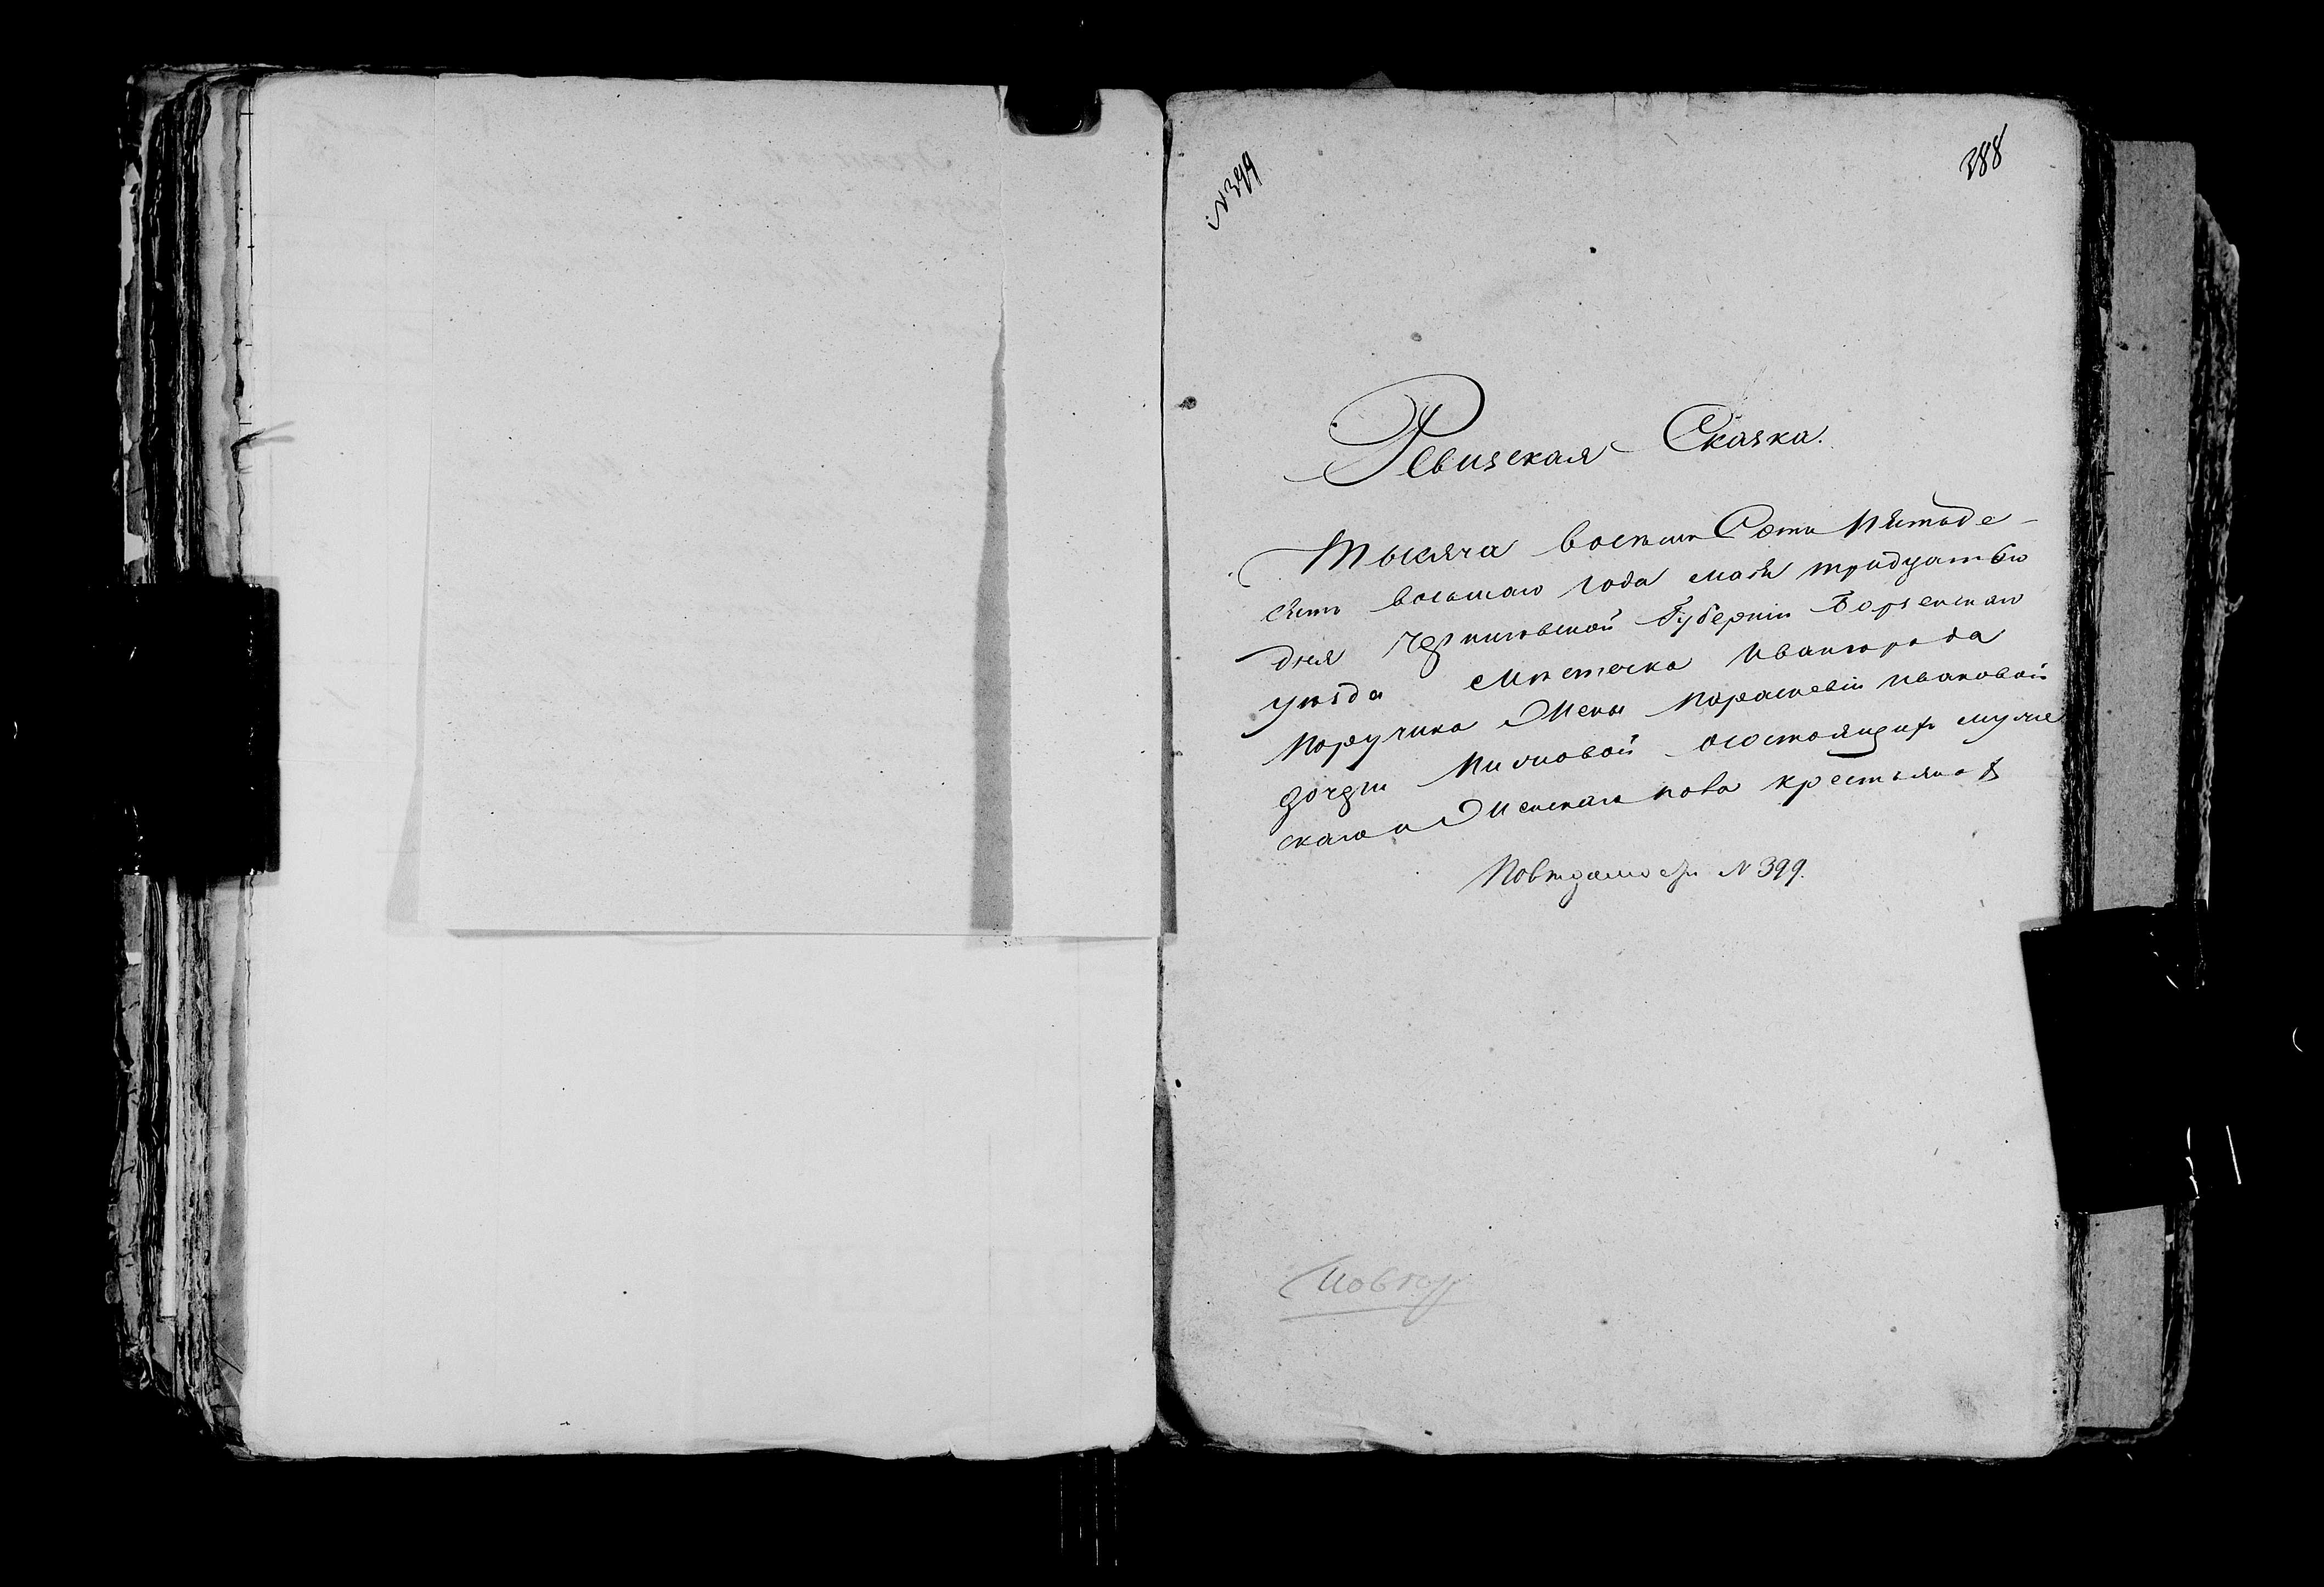 № 399
388
Ревизская Сказка.
Тысяча восемь Сотъ Пятьде-
сятъ восьмаго года мая тридцатаго
дня Черниговской Губерніи Борзенскаго
уѣзда Мѣстечка Ивангорода
Поручика Жены Параскевіи Ивановой
дочери осостоящихъ муже
скаго и Женскаго пола крестьянахъ
По вѣдомости № 399.
Повтор